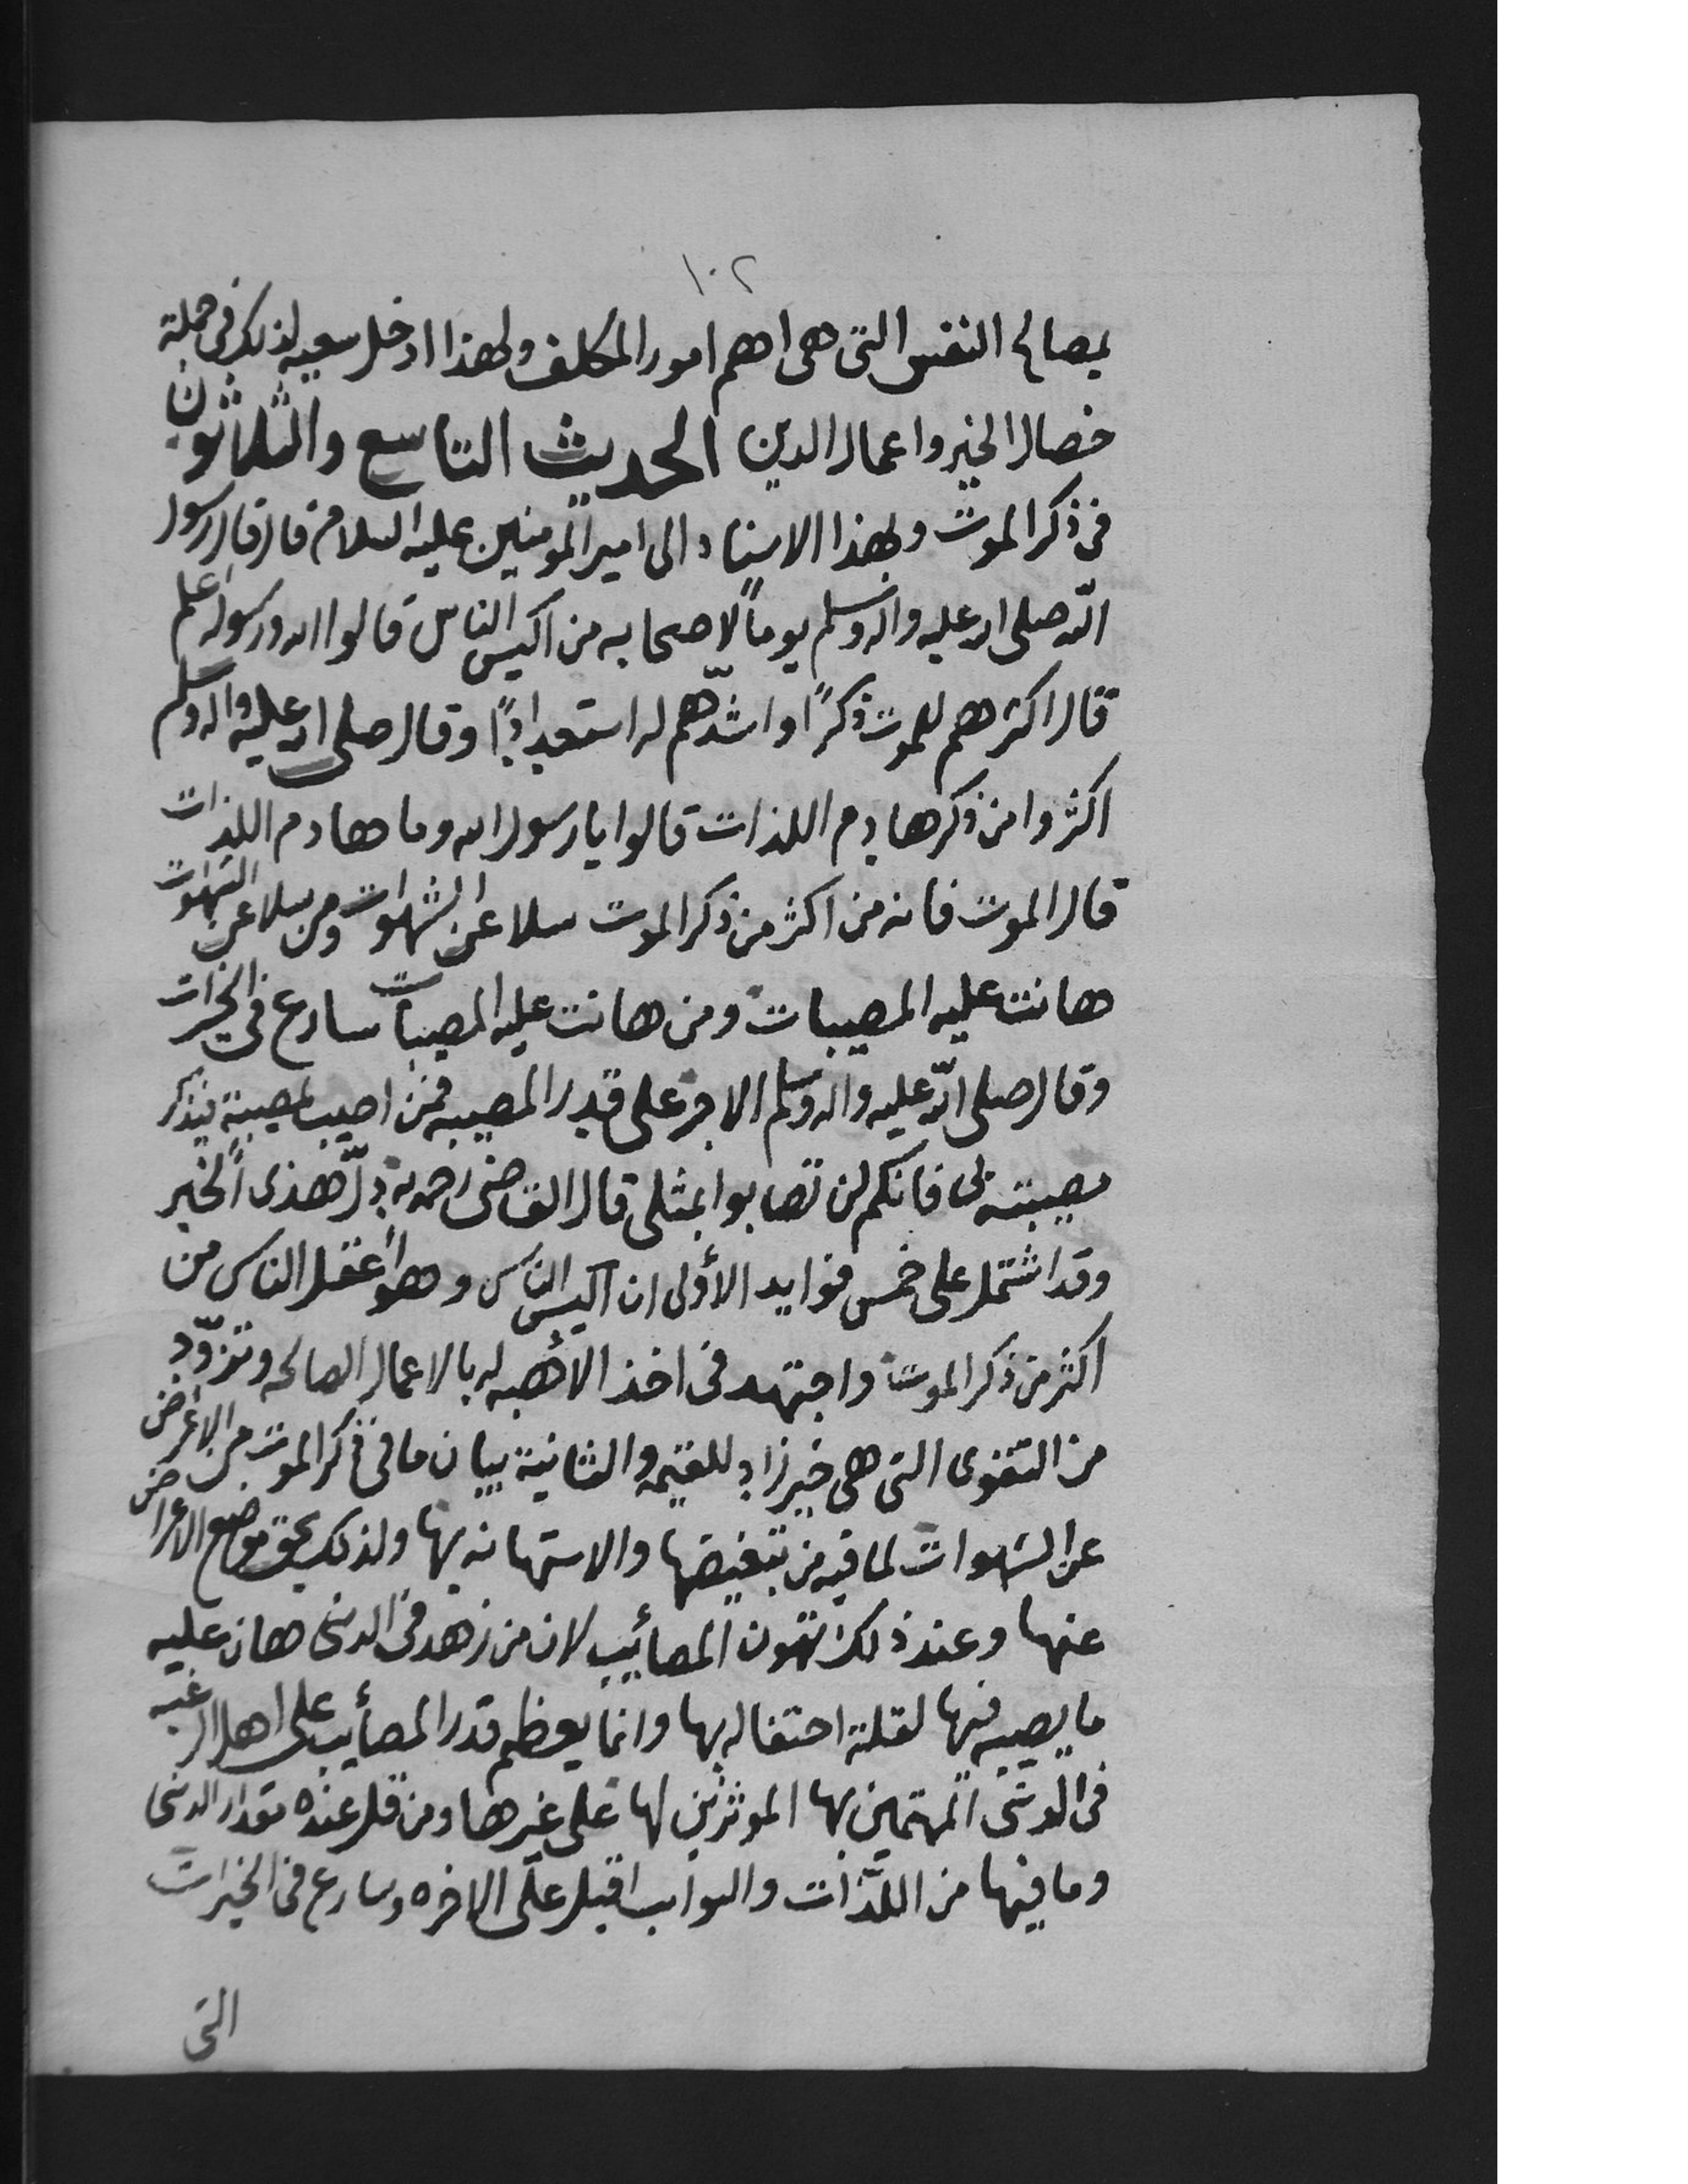 ١٠٢
بمصالح النفس التى هى اهم امور المكلف ولهذا ادخل سعيه لذلك فى جملة
خصال الخير واعمال الدين الحديث التاسع والثلاثون
فى ذكر الموت وبهذا الاسناد الى امير المومنين عليه السلام قال قال رسول
الله صلى الله عليه واله وسلم يوماً لاصحابه من اكيس الناس قالوا الله ورسوله اعلم
قال اكثرهم للموت ذكراً واشدّهم له استعداداً وقال صلى الله عليه واله وسلم
اكثروا من ذكر هادم اللذات قالوا يا رسول الله وما هادم اللذات
قال الموت فانه من اكثر من ذكر الموت سلا عن الشهوات ومن سلا عن الشهوات
هانت عليه المصيبات ومن هانت عليه المصيبات سارع فى الخيرات
وقال صلى الله عليه واله وسلم الاجر على قدر المصيبه فمن اصيب بمصيبة فيذكر
مصيبته بى فانكم لن تصابوا بمثلى قال القاضى رحمه دلّ هذى الخبر
وقد اشتمل على خمس فوايد الأولى ان اكيس الناس وهو أعقل الناس من
اكثر من ذكر الموت واجتهد فى اخذ الأهبه له بالاعمال الصالحه وتزوّد
من التقوى التى هى خير زاد للقيمه والثانية بيان ما فى ذكر الموت من الاغراض
عن الشهوات لما فيه من تبغيضها والاستهانه بها ولذلك يحق موضع الاعراض
عنها وعند ذلك تهون المصائيب لان من زهد فى الدنى هان عليه
ما يصيبه فيها لقلة احتفاله بها وانما يعظم قدر المصأيب على اهل الرغبه
فى الدنى المهتمين بها الموثرين لها على غيرها ومن قل عنده مقدار الدنى
وما فيها من اللذّات والنوايب اقبل على الاخره وسارع فى الخيرات
التى